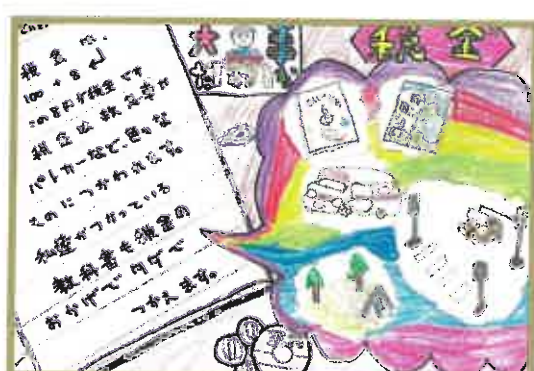 税金は、
100+8
この8円が税金です
税金は救急車や
パトカーなど、色々な
ものにつかわれます。
私達がつかっている
教科書も税金の
おかげでタダで
つかえます。
大事な
税金